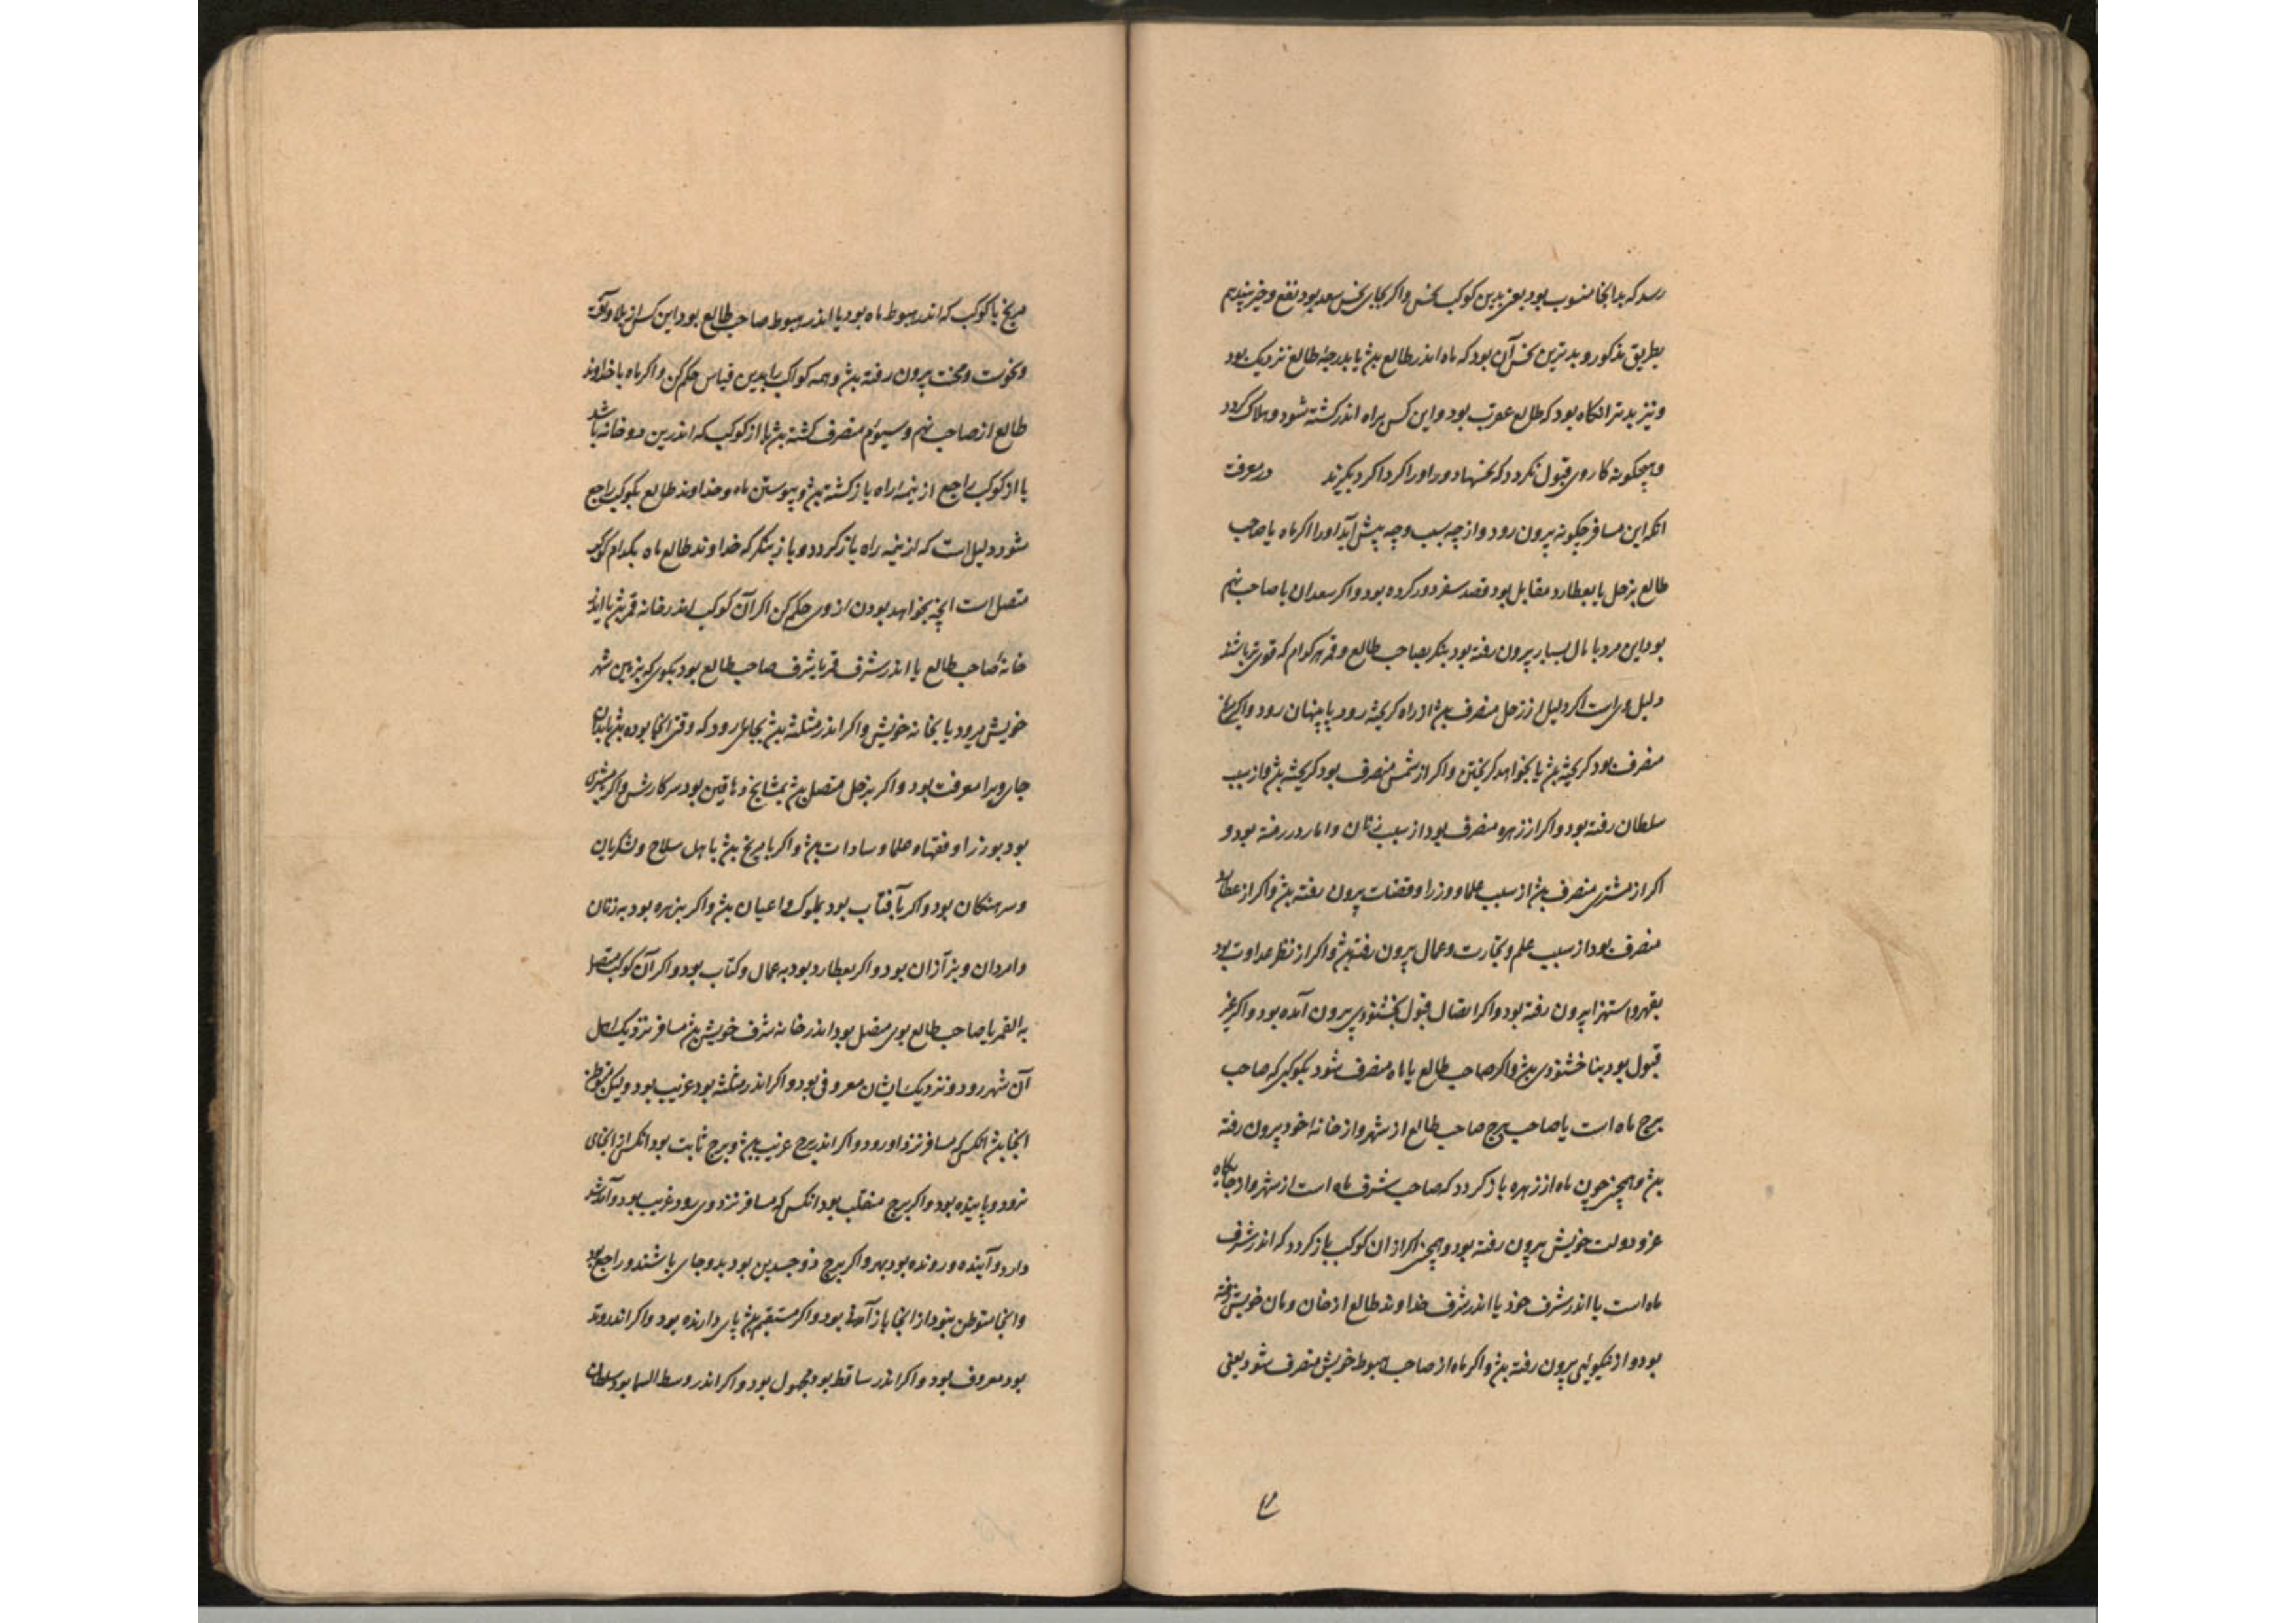 رسد که بدانجا منسوب بود یعنی بدین کوکب نحس و اکر بجای نحس سعد بود نفع و خیر بیند هم
بطریق مذکور و بدترین نحس آن بود که ماه اندر طالع بدش یا بدرجهٔ طالع نزدیک بود
و نیز بدتر انکاه بود که طالع عقرب بود و این کس براه اندر کشته شود و هلاک کردد
و هیچکونه کار وی قبول نکردد که نحسها دور او را کرداکرد بکیرند در معرفت
انکه این مسافر چکونه بیرون رود و از چه سبب و چه پیش آید او را اکر ماه یا صاحب
طالع بزحل یا بعطارد مقابل بود قصد سفر دور کرده بود و اکر سعدان با صاحب نهم
بود این مرد با مال بسیار بیرون رفته بود بنکر بصاحب طالع و قمر هر کدام که قوی تر باشند
دلیل وی است اکر دلیل از زحل منصرف بدش از راه کریخته رود یا پنهان رود و اکر از مریخ
منصرف بود کریخته بدش یا بخواهد کریختن و اکر از شمس منصرف بود کریخته بدش و از سبب
سلطان رفته بود و اکر از زهره منصرف بود از سبب زنان و اما رد رفته بود و
اکر از مشتری منصرف بدش از سبب علما و وزرا و قضات بیرون رفته بدش و اکر از عطارد
منصرف بود از سبب علم و تجارت و عمال بیرون رفته بدش و اکر از نظر عداوت بود
بقهر و استهزا بیرون رفته بود و اکر اتصال قبول بخشنودی بیرون آمده بود و اکر غیر
قبول بود بناخشنودی بدش و اکر صاحب طالع یا ماه منصرف شود بکوکبی که صاحب
برج ماه است یا صاحب برج صاحب طالع از شهر و از خانه خود بیرون رفته
بدش و همچنین چون ماه از زهره باز کردد که صاحب شرف ماه است از شهر و از جایکاه
عز و دولت خویش بیرون رفته بود و همچنین اکر از ان کوکب باز کردد که اندر شرف
ماه است یا اندر شرف خود یا اندر شرف خداوند طالع از خان و مان خویش رفته
بود و از نیکوئی بیرون رفته بدش و اکر ماه از صاحب هبوط خویش منصرف شود یعنی
مریخ یا کوکب که اندر هبوط ماه بود یا اندر هبوط صاحب طالع بود این کس از بلا و آفت
و نحوست و محنت بیرون رفته بدش و همه کواکب را بدین قیاس حکم کن و اکر ماه با خداوند
طالع از صاحب نهم و سیوم منصرف کشته بدش یا از کوکب که اندرین دو خانه باشد
یا از کوکب راجع از نیمه راه باز کشته بدش و پیوستن ماه و خداوند طالع بکوکب راجع
شود دلیل است که از نیمه راه باز کردد و باز بنکر که خداوند طالع ماه بکدام کوکب
متصل است انچه بخواهد بودن از وی حکم کن اکر آن کوکب اندر خانه قمر بدش یا اندر
خانهٔ صاحب طالع یا اندر شرف قمر یا شرف صاحب طالع بود بکوی که بزمین شهر
خویش میرود یا بخانه خویش و اکر اندر مثلثه بدش بجای رود که وقتی انجا بوده بدش یا بدان
جای ویرا معرفت بود و اکر بزحل متصل بدش بمشایخ دهاقین بود سر کارش و اکر بمشتری
بود بوزرا و فقها و علما و سادات بدش و اکر با مریخ بدش با اهل سلاح و لشکریان
و سرهنکان بود و اکر بآفتاب بود بملوک و اعیان بدش و اکر بزهره بود به زنان
و امردان و بزازان بود و اکر بعطارد بود به عمال و کتاب بود و اکر آن کوکب متصل
به القمر یا صاحب طالع بوی متصل بود اندر خانه شرف خویش بدش مسافر نزدیک اهل
آن شهر رود و نزدیک ایشان معروفی بود و اکر اندر مثلثه بود غریب بود ولیکن متوطن
انجا بدش انکس که مسافر نزد او رود و اکر اندر برج غریب بدش و برج ثابت بود انکس از انجای
نرود و پاینده بود و اکر برج منقلب بود انکس که مسافر نزد وی رود غریب بود و آمد شد
دارد و آینده و رونده بود بهر و اکر برج ذوجسدین بود بدو جای باشند و راجع بود
و انجا متوطن نبود از انجا باز آمده بود و اکر مستقیم بدش پای دارنده بود و اکر اندر وتد
بود معروف بود و اکر اندر ساقط بود مجهول بود و اکر اندر وسط السما بود سلطان